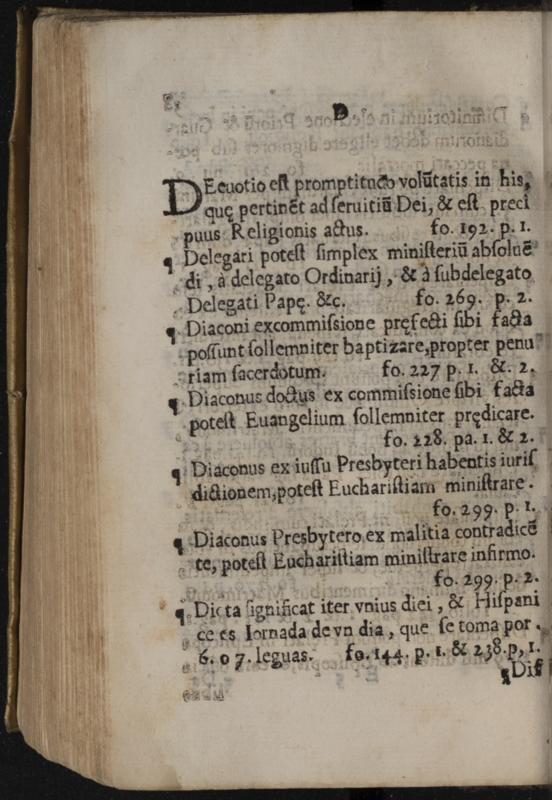 D
DEeuotio est promptitudo volūtatis in his,
quę pertinēt ad seruitiū Dei, & est preci
puus Religionis actus. fo. 192. p. 1.
¶ Delegari potest simplex ministeriū absoluē
di, à delegato Ordinarij, & à subdelegato
Delegati Papę. &c. fo. 269. p. 2.
¶ Diaconi excommissione pręfecti sibi facta
possunt sollemniter baptizare, propter penu
riam sacerdotum. fo. 227 p. 1. &. 2.
¶ Diaconus doctus ex commissione sibi facta
potest Euangelium sollemniter prędicare.
fo. 228. pa. 1. & 2.
¶ Diaconus ex iussu Presbyteri habentis iuris
dictionem, potest Eucharistiam ministrare.
fo. 299. p. 1.
¶ Diaconus Presbytero ex malitia contradicē
te, potest Eucharistiam ministrare infirmo.
fo. 299. p. 2.
¶ Dicta significat iter vnius diei, & Hispani
ce es Iornada de vn dia, que se toma por.
6. o 7. leguas. fo. 144. p. 1. & 238. p, 1.
¶ Dif